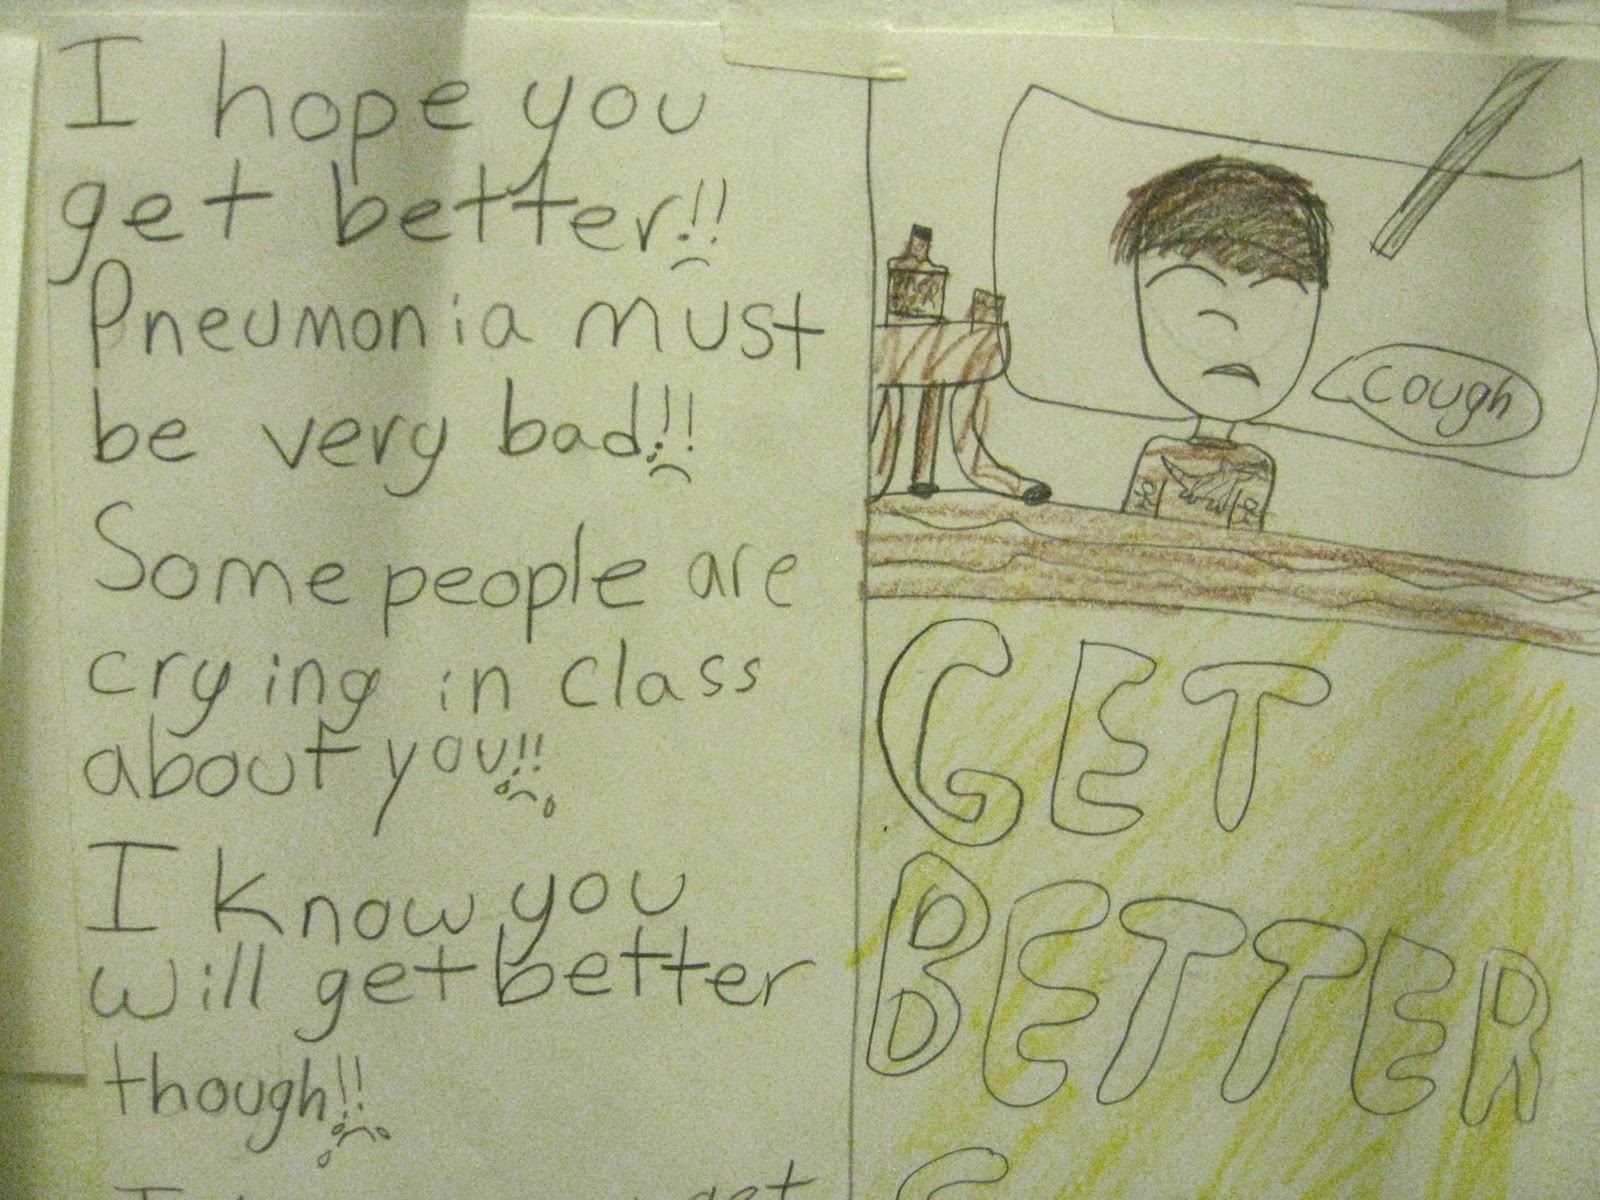 I hope you
get better!!
Pneumonia must
be very bad!!
Some people are
crying in class
about you!!
I know you
will get better
though!!
get
cough
GET
BETTER